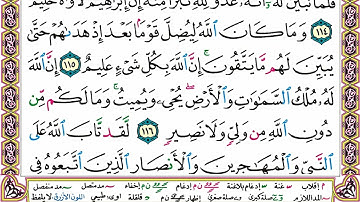 فَلَمَّا تَبَيَّنَ لَهُۥٓ أَنَّهُۥ عَدُوٌّ لِّلَّهِ تَبَرَّأَ مِنْهُ إِنَّ إِبْرَٰهِيمَ لَأَوَّٰهٌ حَلِيمٌ
١١٤ وَمَا كَانَ ٱللَّهُ لِيُضِلَّ قَوْمًۢا بَعْدَ إِذْ هَدَىٰهُمْ حَتَّىٰ
يُبَيِّنَ لَهُم مَّا يَتَّقُونَ ۚ إِنَّ ٱللَّهَ بِكُلِّ شَىْءٍ عَلِيمٌ ١١٥ إِنَّ ٱللَّهَ
لَهُۥ مُلْكُ ٱلسَّمَٰوَٰتِ وَٱلْأَرْضِ ۖ يُحْىِۦ وَيُمِيتُ ۚ وَمَا لَكُم مِّن
دُونِ ٱللَّهِ مِن وَلِىٍّ وَلَا نَصِيرٍ ١١٦ لَّقَد تَّابَ ٱللَّهُ عَلَى
ٱلنَّبِىِّ وَٱلْمُهَٰجِرِينَ وَٱلْأَنصَارِ ٱلَّذِينَ ٱتَّبَعُوهُ فِى